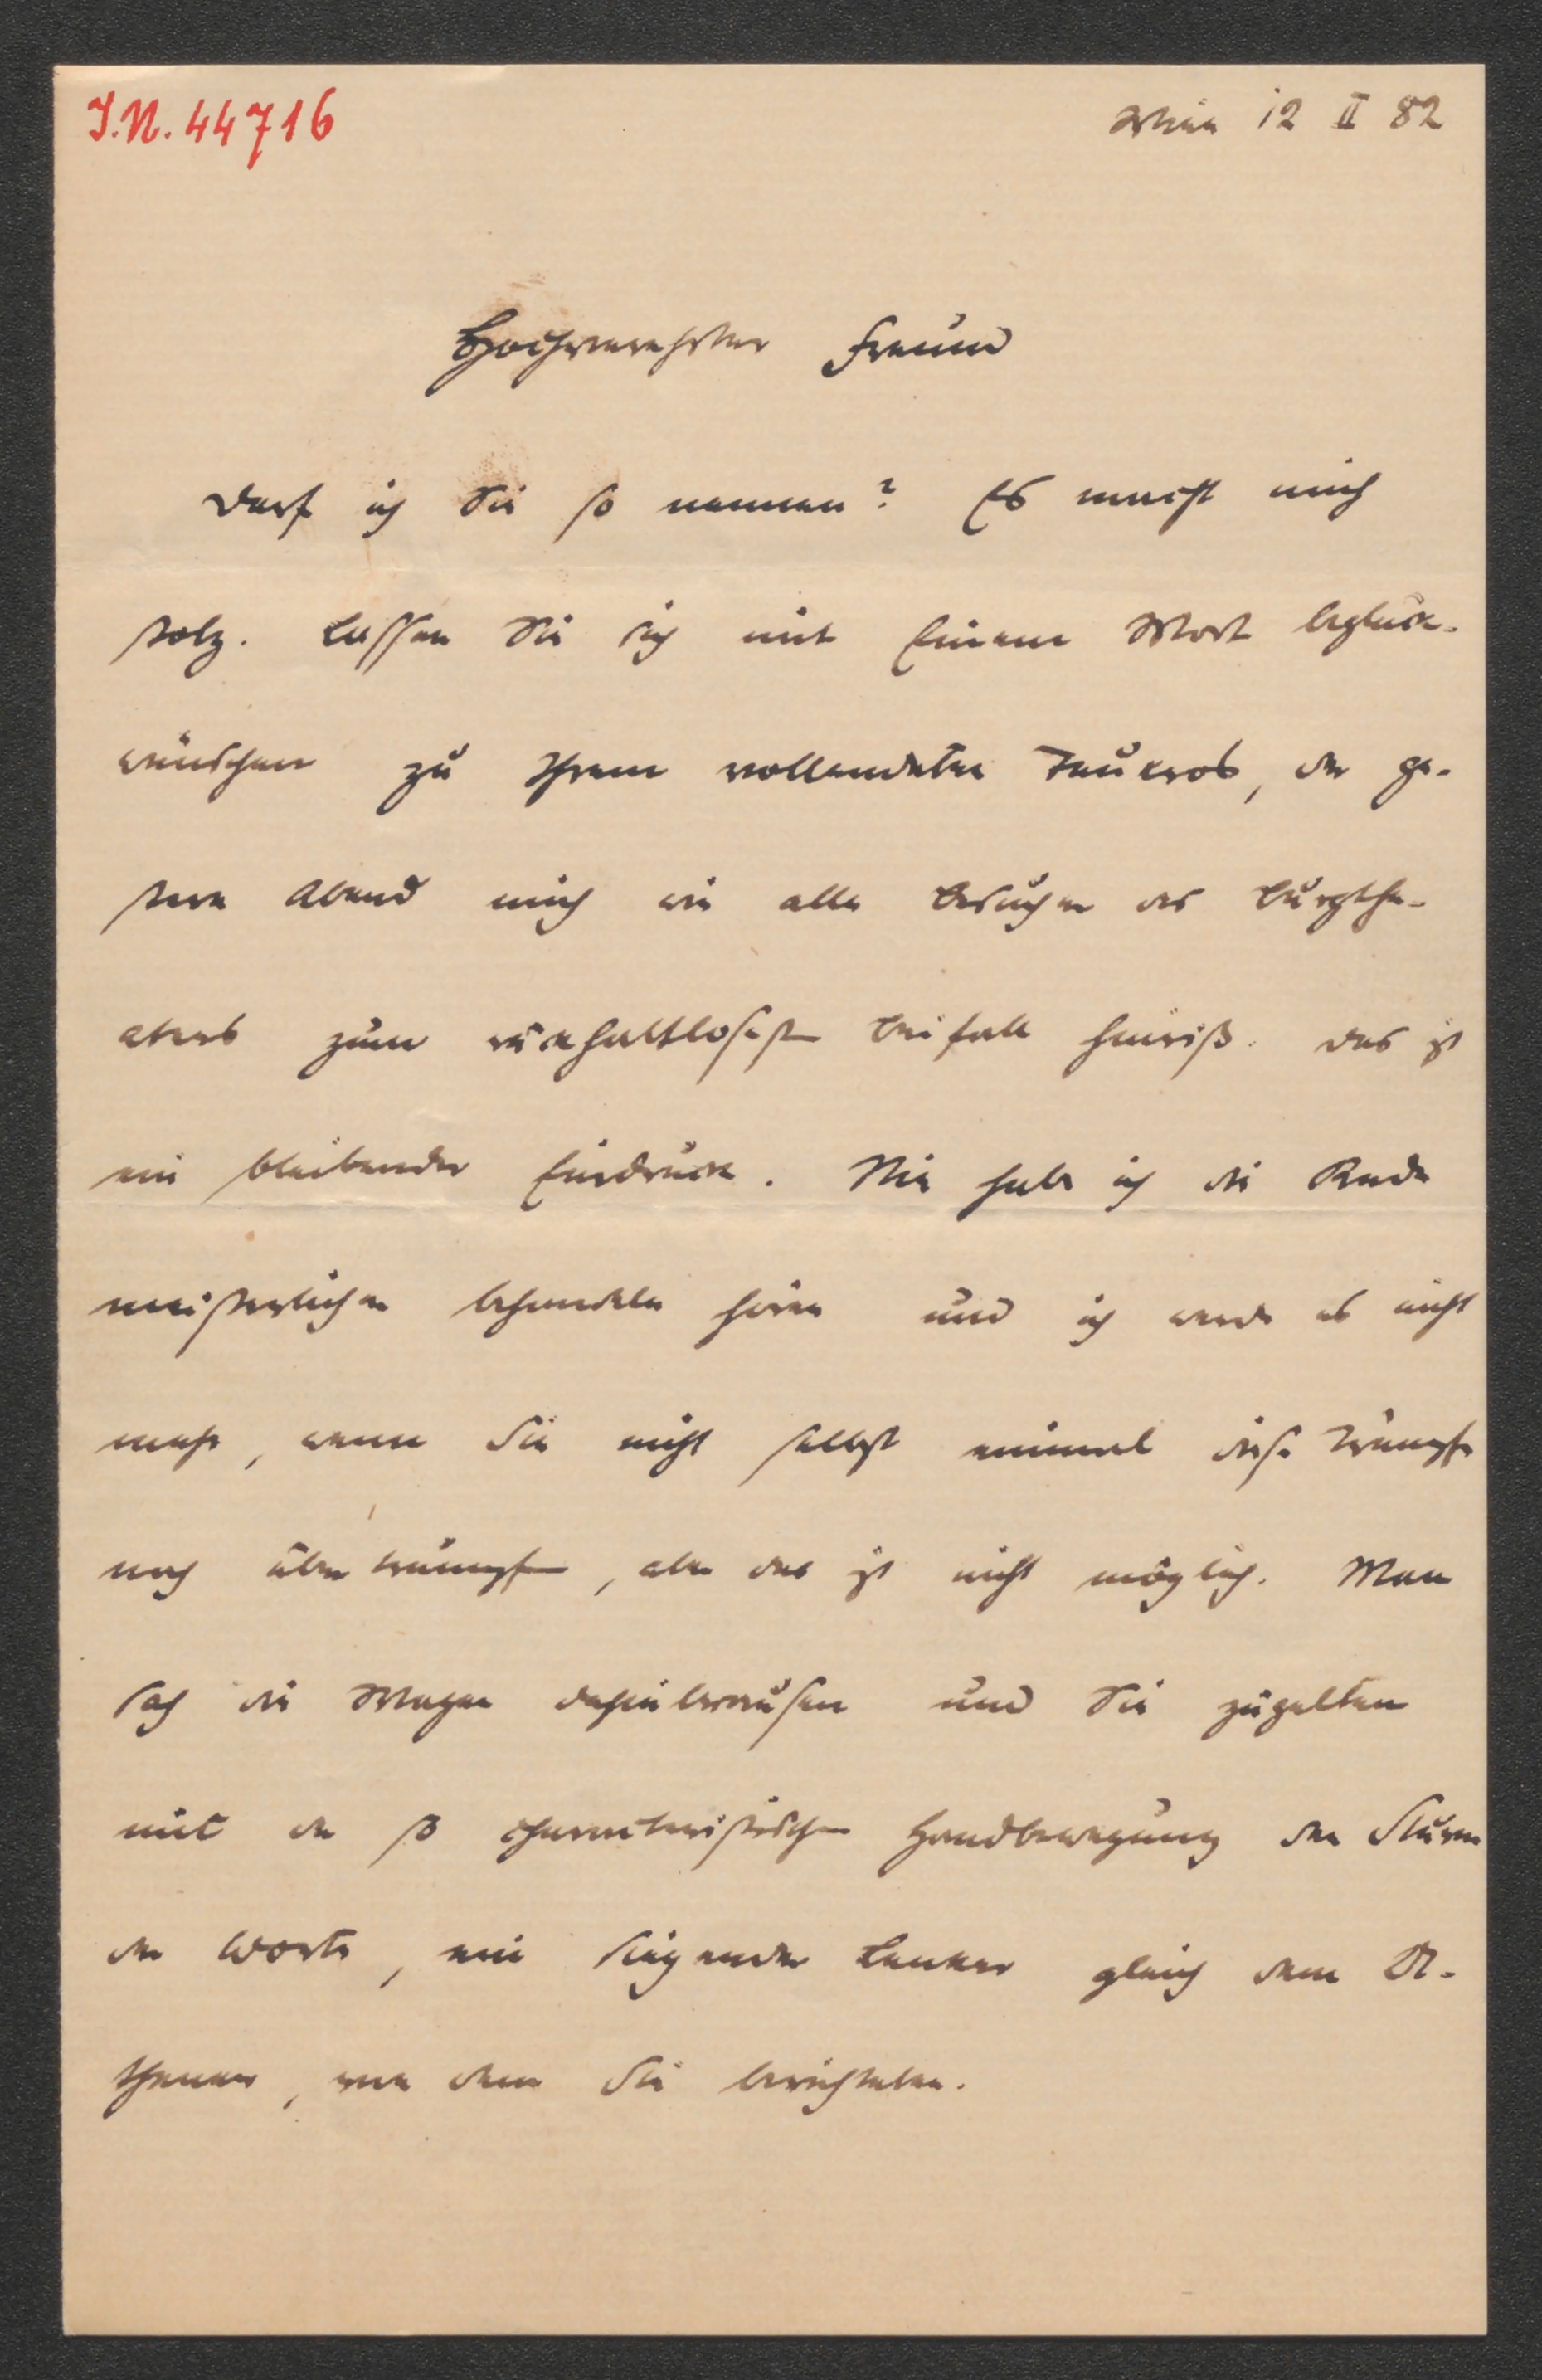 J.N. 44716
Wien 12 II 82
Hochverehrter Freund
Darf ich Sie so nennen? Es macht mich
stolz. Lassen Sie sich mit Einem Wort beglück-
wünschen zu Ihrem vollendeten Teukros, der ge-
stern Abend mich wie alle Besucher des Burgthe-
aters zum rückhaltlosesten Beifall hinriß. Das ist
ein bleibender Eindruck. Nie habe ich die Rede
meisterlicher behandeln hören und ich werde es nicht
mehr, wenn Sie nicht selbst einmal diese Trümpfe
noch übertrumpfen, aber das ist nicht möglich. Man
sah die Wagen dahinbrausen und Sie zügelten
mit der so charakteristischen Handbewegung den Sturm
der Worte, ein siegender Lenker gleich dem At-
thener, von dem Sie berichteten.